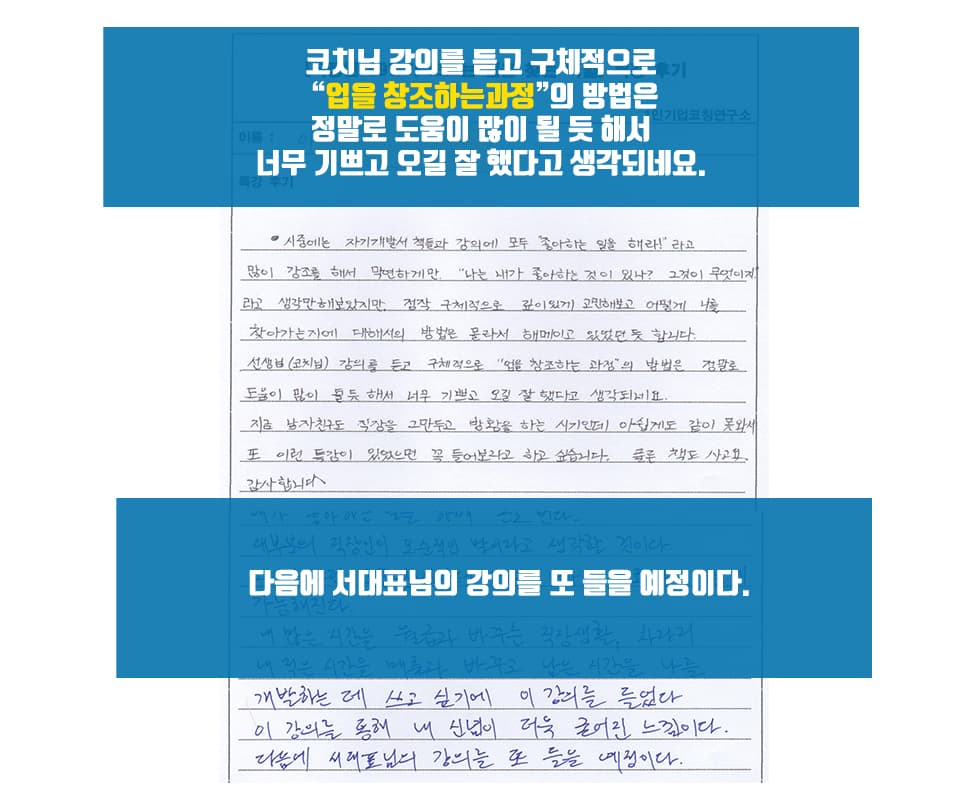 코치님 강의를 듣고 구체적으로
“업을 창조하는과정”의 방법은
정말로 도움이 많이 될 듯 해서
너무 기쁘고 오길 잘 했다고 생각되네요.
후기
1인기업코칭연구소
이름 :
특강 후기
• 시중에는 자기개발서 책들과 강의에 모두 "좋아하는 일을 해라!" 라고
많이 강조를 해서 막연하게만, "나는 내가 좋아하는 것이 있나? 그것이 무엇이지?"
라고 생각만해보았지만, 정작 구체적으로 깊이있게 고민해보고 어떻게 나를
찾아가는지에 대해서의 방법은 몰라서 헤메이고 있었던 듯 합니다.
선생님(코치님) 강의를 듣고 구체적으로 "업을 창조하는 과정"의 방법은 정말로
도움이 많이 될듯 해서 너무 기쁘고 오길 잘 했다고 생각되네요.
지금 남자친구도 직장을 그만두고 방황을 하는 시기인데 아쉽게도 같이 못와서
또 이런 특강이 있었으면 꼭 들어보라고 하고 싶습니다. 책도 사고요.
감사합니다
내가 좋아하는 일을 하며 돈도 번다.
대부분의 직장인이 모순적인 말이라고 생각할 것이다
다음에 서대표님의 강의를 또 들을 예정이다.
가능해진다.
내 많은 시간을 월급과 바꾸는 직장생활, 차라리
내 적은 시간을 바꾸고 남은 시간을 나를
개발하는 데 쓰고 싶기에 이 강의를 들었다
이 강의를 통해 내 신념이 더욱 굳어진 느낌이다.
다음에 서대표님의 강의를 또 들을 예정이다.